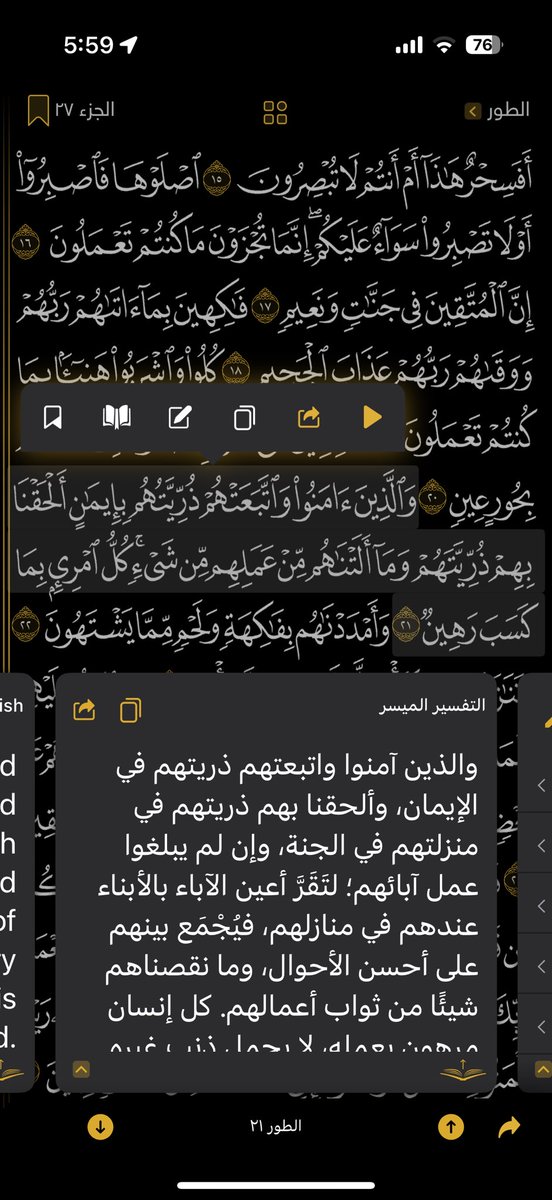 5:59
76
الطور
الجزء ٢٧
أَفَسِحْرٌ هَٰذَآ أَمْ أَنتُمْ لَا تُبْصِرُونَ ١٥ ٱصْلَوْهَا فَٱصْبِرُوٓا۟
أَوْ لَا تَصْبِرُوا۟ سَوَآءٌ عَلَيْكُمْ ۖ إِنَّمَا تُجْزَوْنَ مَا كُنتُمْ تَعْمَلُونَ ١٦
إِنَّ ٱلْمُتَّقِينَ فِى جَنَّٰتٍ وَنَعِيمٍ ١٧ فَٰكِهِينَ بِمَآ ءَاتَىٰهُمْ رَبُّهُمْ
وَوَقَىٰهُمْ رَبُّهُمْ عَذَابَ ٱلْجَحِيمِ ١٨ كُلُوا۟ وَٱشْرَبُوا۟ هَنِيٓـًٔۢا بِمَا
كُنتُمْ تَعْمَلُونَ
بِحُورٍ عِينٍ ٢٠ وَٱلَّذِينَ ءَامَنُوا۟ وَٱتَّبَعَتْهُمْ ذُرِّيَّتُهُم بِإِيمَٰنٍ أَلْحَقْنَا
بِهِمْ ذُرِّيَّتَهُمْ وَمَآ أَلَتْنَٰهُم مِّنْ عَمَلِهِم مِّن شَىْءٍ ۚ كُلُّ ٱمْرِئٍۭ بِمَا
كَسَبَ رَهِينٌ ٢١ وَأَمْدَدْنَٰهُم بِفَٰكِهَةٍ وَلَحْمٍ مِّمَّا يَشْتَهُونَ ٢٢
التفسير الميسر
والذين آمنوا واتبعتهم ذريتهم في
الإيمان، وألحقنا بهم ذريتهم في
منزلتهم في الجنة، وإن لم يبلغوا
عمل آبائهم؛ لتَقَرَّ أعين الآباء بالأبناء
عندهم في منازلهم، فيُجْمَع بينهم
على أحسن الأحوال، وما نقصناهم
شيئًا من ثواب أعمالهم. كل إنسان
مرهون بعمله، لا يحمل ذنب غيره
الطور ٢١